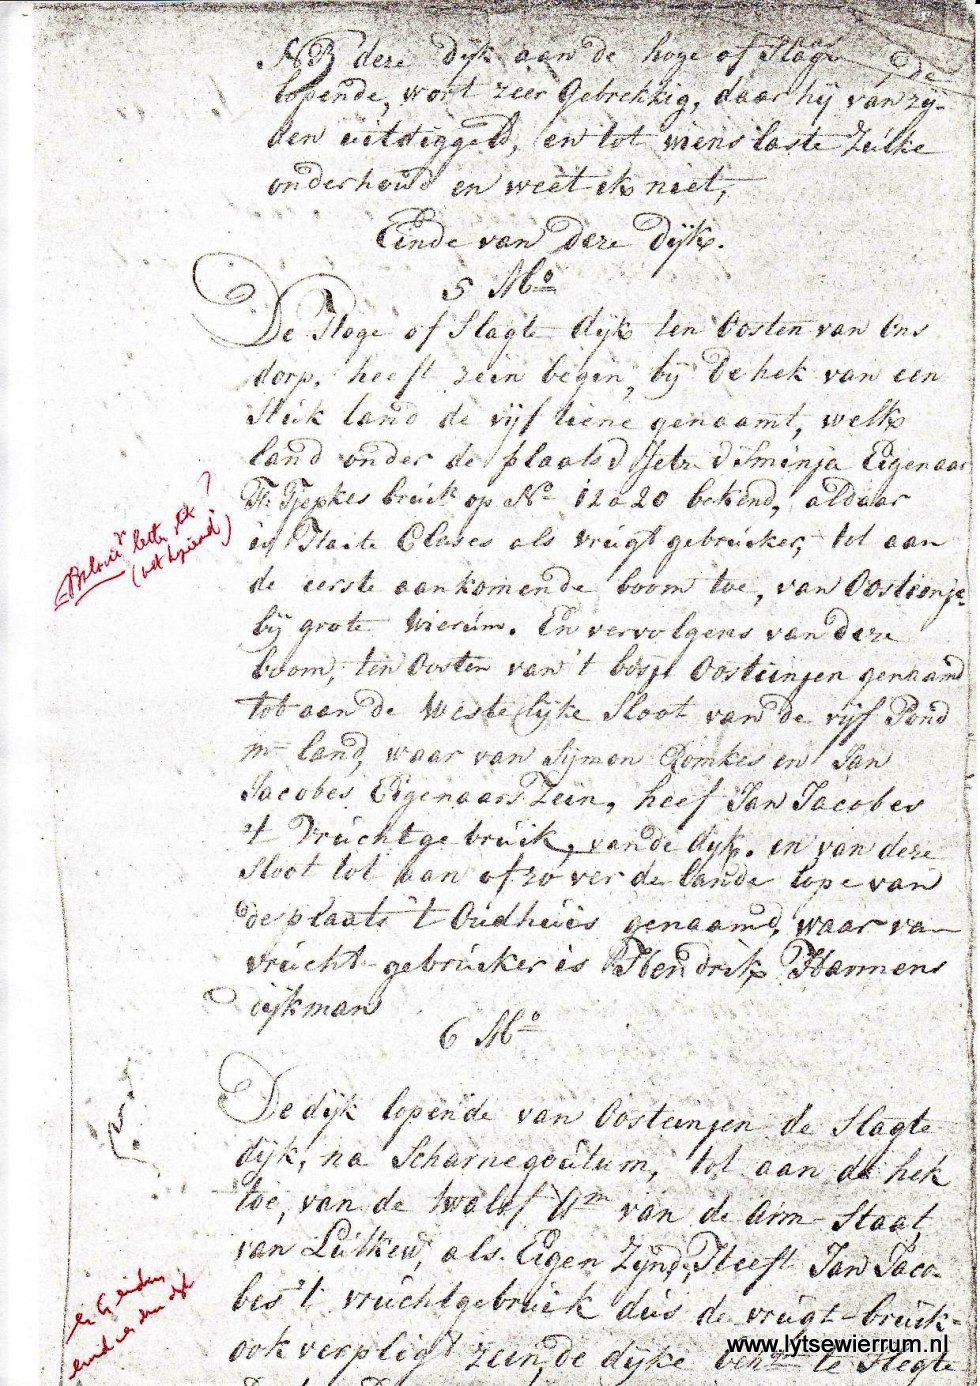 NB deze dijk aan de hoge of Slagte
lopende, wort zeer gebrekkig, daar hij van zij-
den uitdiggeld, en tot wiens laste zulke
onderhoud en weet ik niet,
Einde van deze Dijk.
5 No
De Hoge of Slagte dijk ten Oosten van Ons
dorp, heeft zein begin, bij de hek van een
stuk land de vijf liene genaamt, welk
land onder de plaats Eigenaar
Tjepkes bruik op No 12 a 20 bekend, aldaar
is Haite Clases als vrugtgebruiker, tot aan
de eerste aankomende boom toe, van Oosteinje
bij grote Wierúm. En vervolgens van deze
boom, ten Oosten van 't Oosteinjen genaamd
tot aan de Westelijke Sloot van de vijf Pond
land, waar van Sijmon Romkes en Jan
Jacobes Eigenaars Zein, heef Jan Jacobes
't Vruchtgebruik, van de dijk. en van deze
Sloot tot aan of zo ver de lande lope van
de plaats 't Oudhuis genaamd, waar van
vrucht-gebruiker is Hendrik Harmens
dijkman
6 No
De dijk lopende van Oosteinjen de Slagte
dijk, na Scharnegoutum, tot aan de hek
toe, van de twalef van de Arm-Staat
van Lutkew, als Eigen Zijnd, Heeft Jan Jaco-
bes 't vruchtgebruik dus de vrugt-bruik-
ook verpligt zein, de dijke te Slegte
www.lytsewierrum.nl